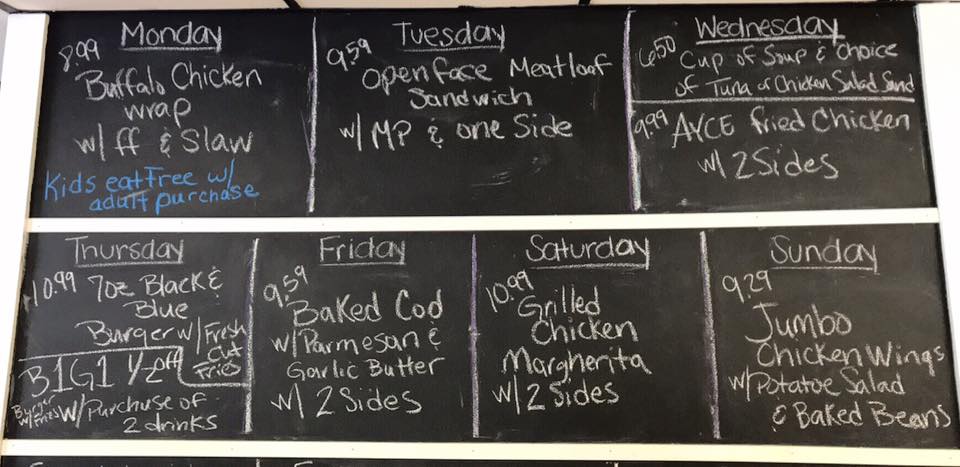 Monday
8.99
Buffalo Chicken
wrap
w/ ff & Slaw
Kids eat free w/
adult purchase
Tuesday
9.59
Open face Meatloaf
Sandwich
w/ MP & one Side
Wednesday
6.50 Cup of Soup & choice
of Tuna or Chicken Salad Sand
9.99 AYCE fried Chicken
w/ 2 Sides
Thursday
10.99 7oz Black &
Blue
Burger w/ Fresh
Cut
Fries
B1G1 1/2 off
Burger
w/ Fries w/ Purchase of
2 drinks
Friday
9.59
Baked Cod
w/ Parmesan &
Garlic Butter
w/ 2 Sides
Saturday
10.99
Grilled
Chicken
Margherita
w/ 2 Sides
Sunday
9.29
Jumbo
Chicken Wings
w/ Potatoe Salad
& Baked Beans